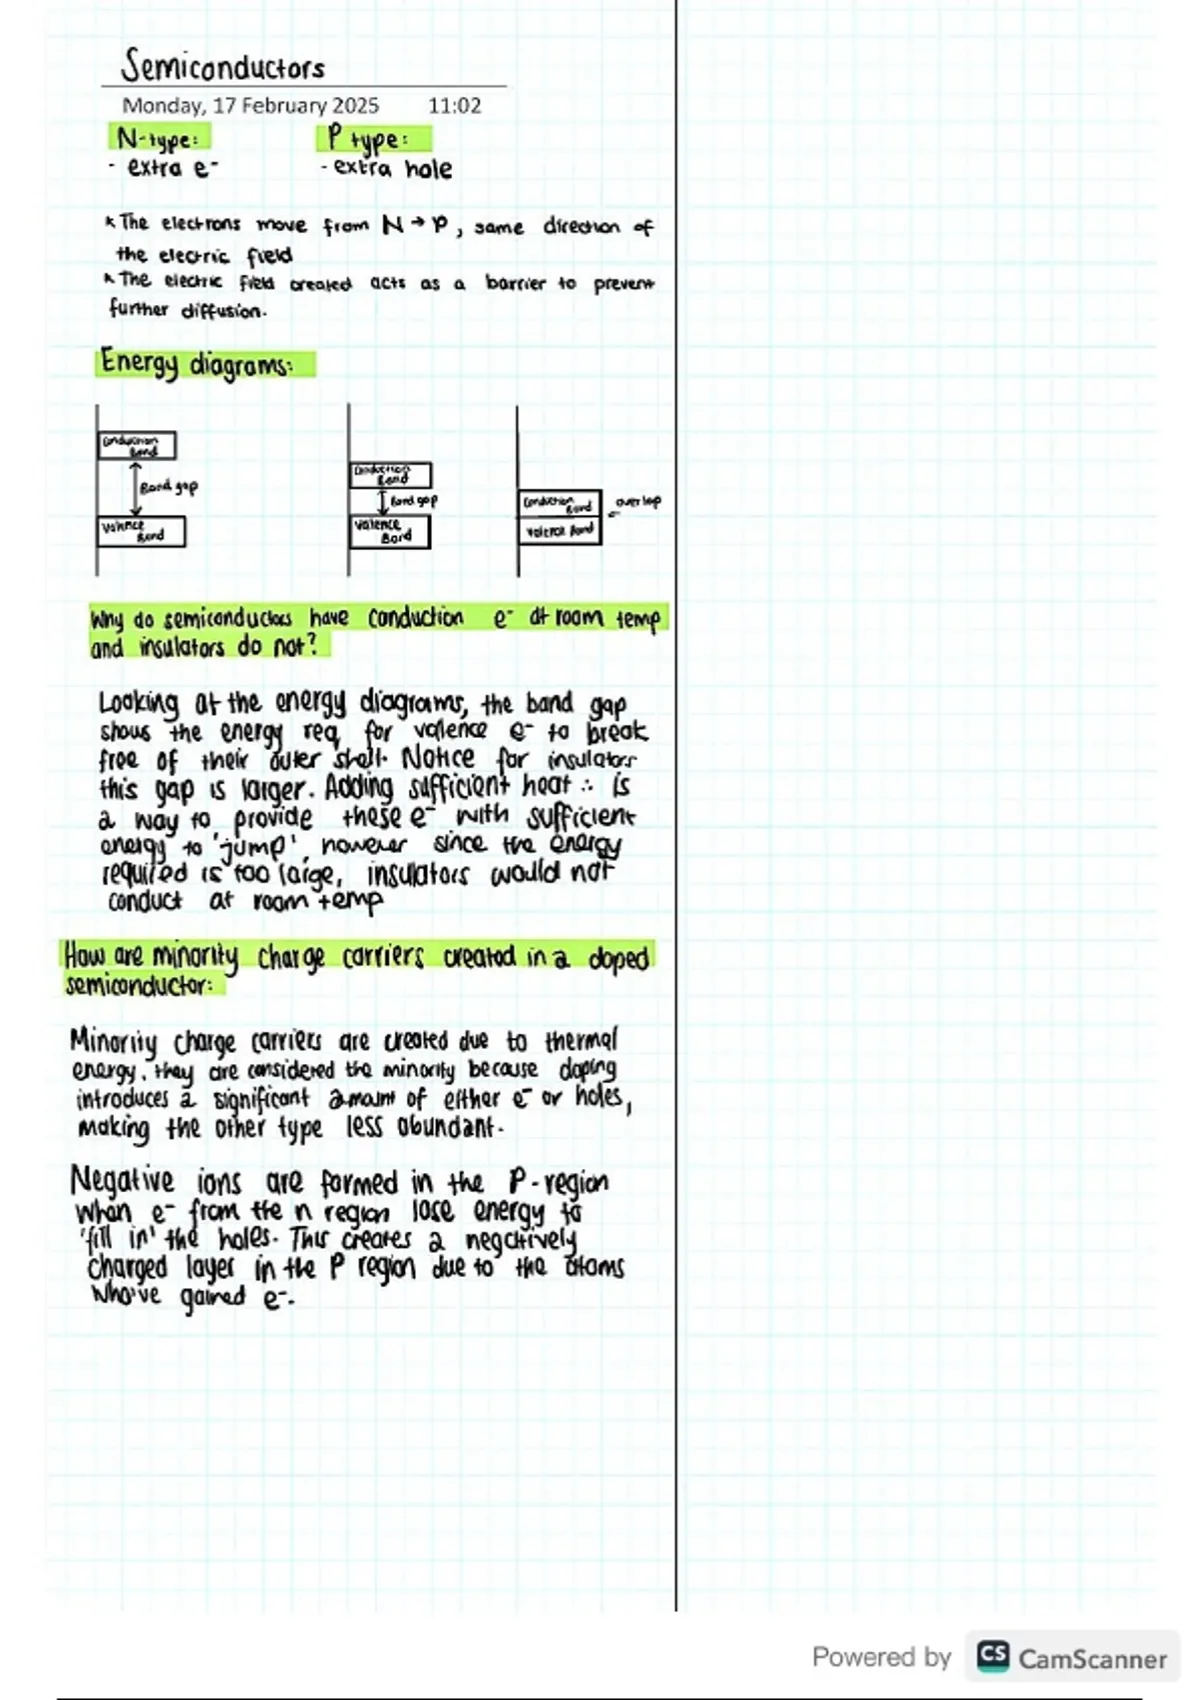 Semiconductors
Monday, 17 February 2025 11:02
N-type: P type:
- extra e⁻ - extra hole
* The electrons move from N → P, same direction of
the electric field
* The electric field created acts as a barrier to prevent
further diffusion.
Energy diagrams:
Conduction
Band
Band gap
Valence
Band
Conduction
Band
Band gap
Valence
Band
Conduction
Band
overlap
Valence Band
Why do semiconductors have conduction e⁻ at room temp
and insulators do not?
Looking at the energy diagrams, the band gap
shows the energy req. for valence e⁻ to break
free of their outer shell. Notice for insulators
this gap is larger. Adding sufficient heat ∴ is
a way to provide these e⁻ with sufficient
energy to 'jump', however since the energy
required is too large, insulators would not
conduct at room temp
How are minority charge carriers created in a doped
semiconductor:
Minority charge carriers are created due to thermal
energy. they are considered the minority because doping
introduces a significant amount of either e⁻ or holes,
making the other type less abundant.
Negative ions are formed in the P-region
when e⁻ from the n region lose energy to
'fill in' the holes. This creates a negatively
charged layer in the P region due to the atoms
who've gained e⁻.
Powered by CS CamScanner